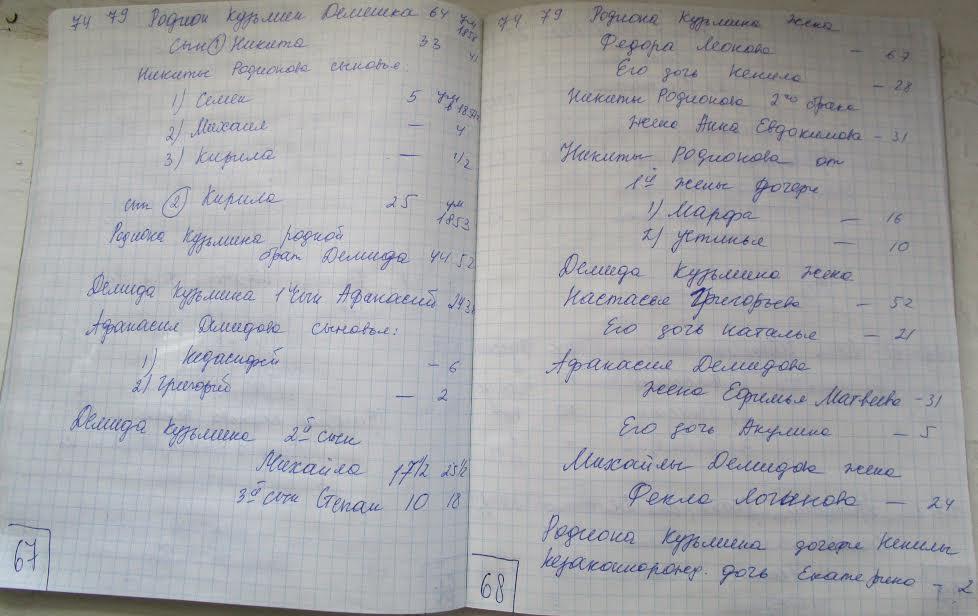 74 79 Родион Кузьмин Демешка 64 ум 1850
сын ① Никита 33 41
Никиты Родионова сыновья:
1) Семен 5 ум в 1857
2) Михаил — 4
3) Кирила — 1/2
сын ② Кирила 25 ум 1853
Родиона Кузьмина родной
брат Демида 44 52
Демида Кузьмина 1й сын Афанасий 24 3
Афанасия Демидова сыновья:
1) — 6
2) Григорий — 2
Демида Кузьмина 2й сын
Михайла 17 1/2 25 1/2
3й сын Степан 10 18
67
74 79 Родиона Кузьмина жена
Федора Леонова — 67
Его дочь Ненила — 28
Никиты Родионова 2го брака
жена Анна Евдокимова — 31
Никиты Родионова от
1й жены дочери
1) Марфа — 16
2) Устинья — 10
Демида Кузьмина жена
Настасья Григорьева — 52
Его дочь Наталья — 21
Афанасия Демидова
жена Ефимья Матвеева — 31
Его дочь Акулина — 5
Михайлы Демидова жена
Фекла Логинова — 24
Родиона Кузьмина дочери Ненилы
незаконнорожд. дочь Екатерина — 2
68